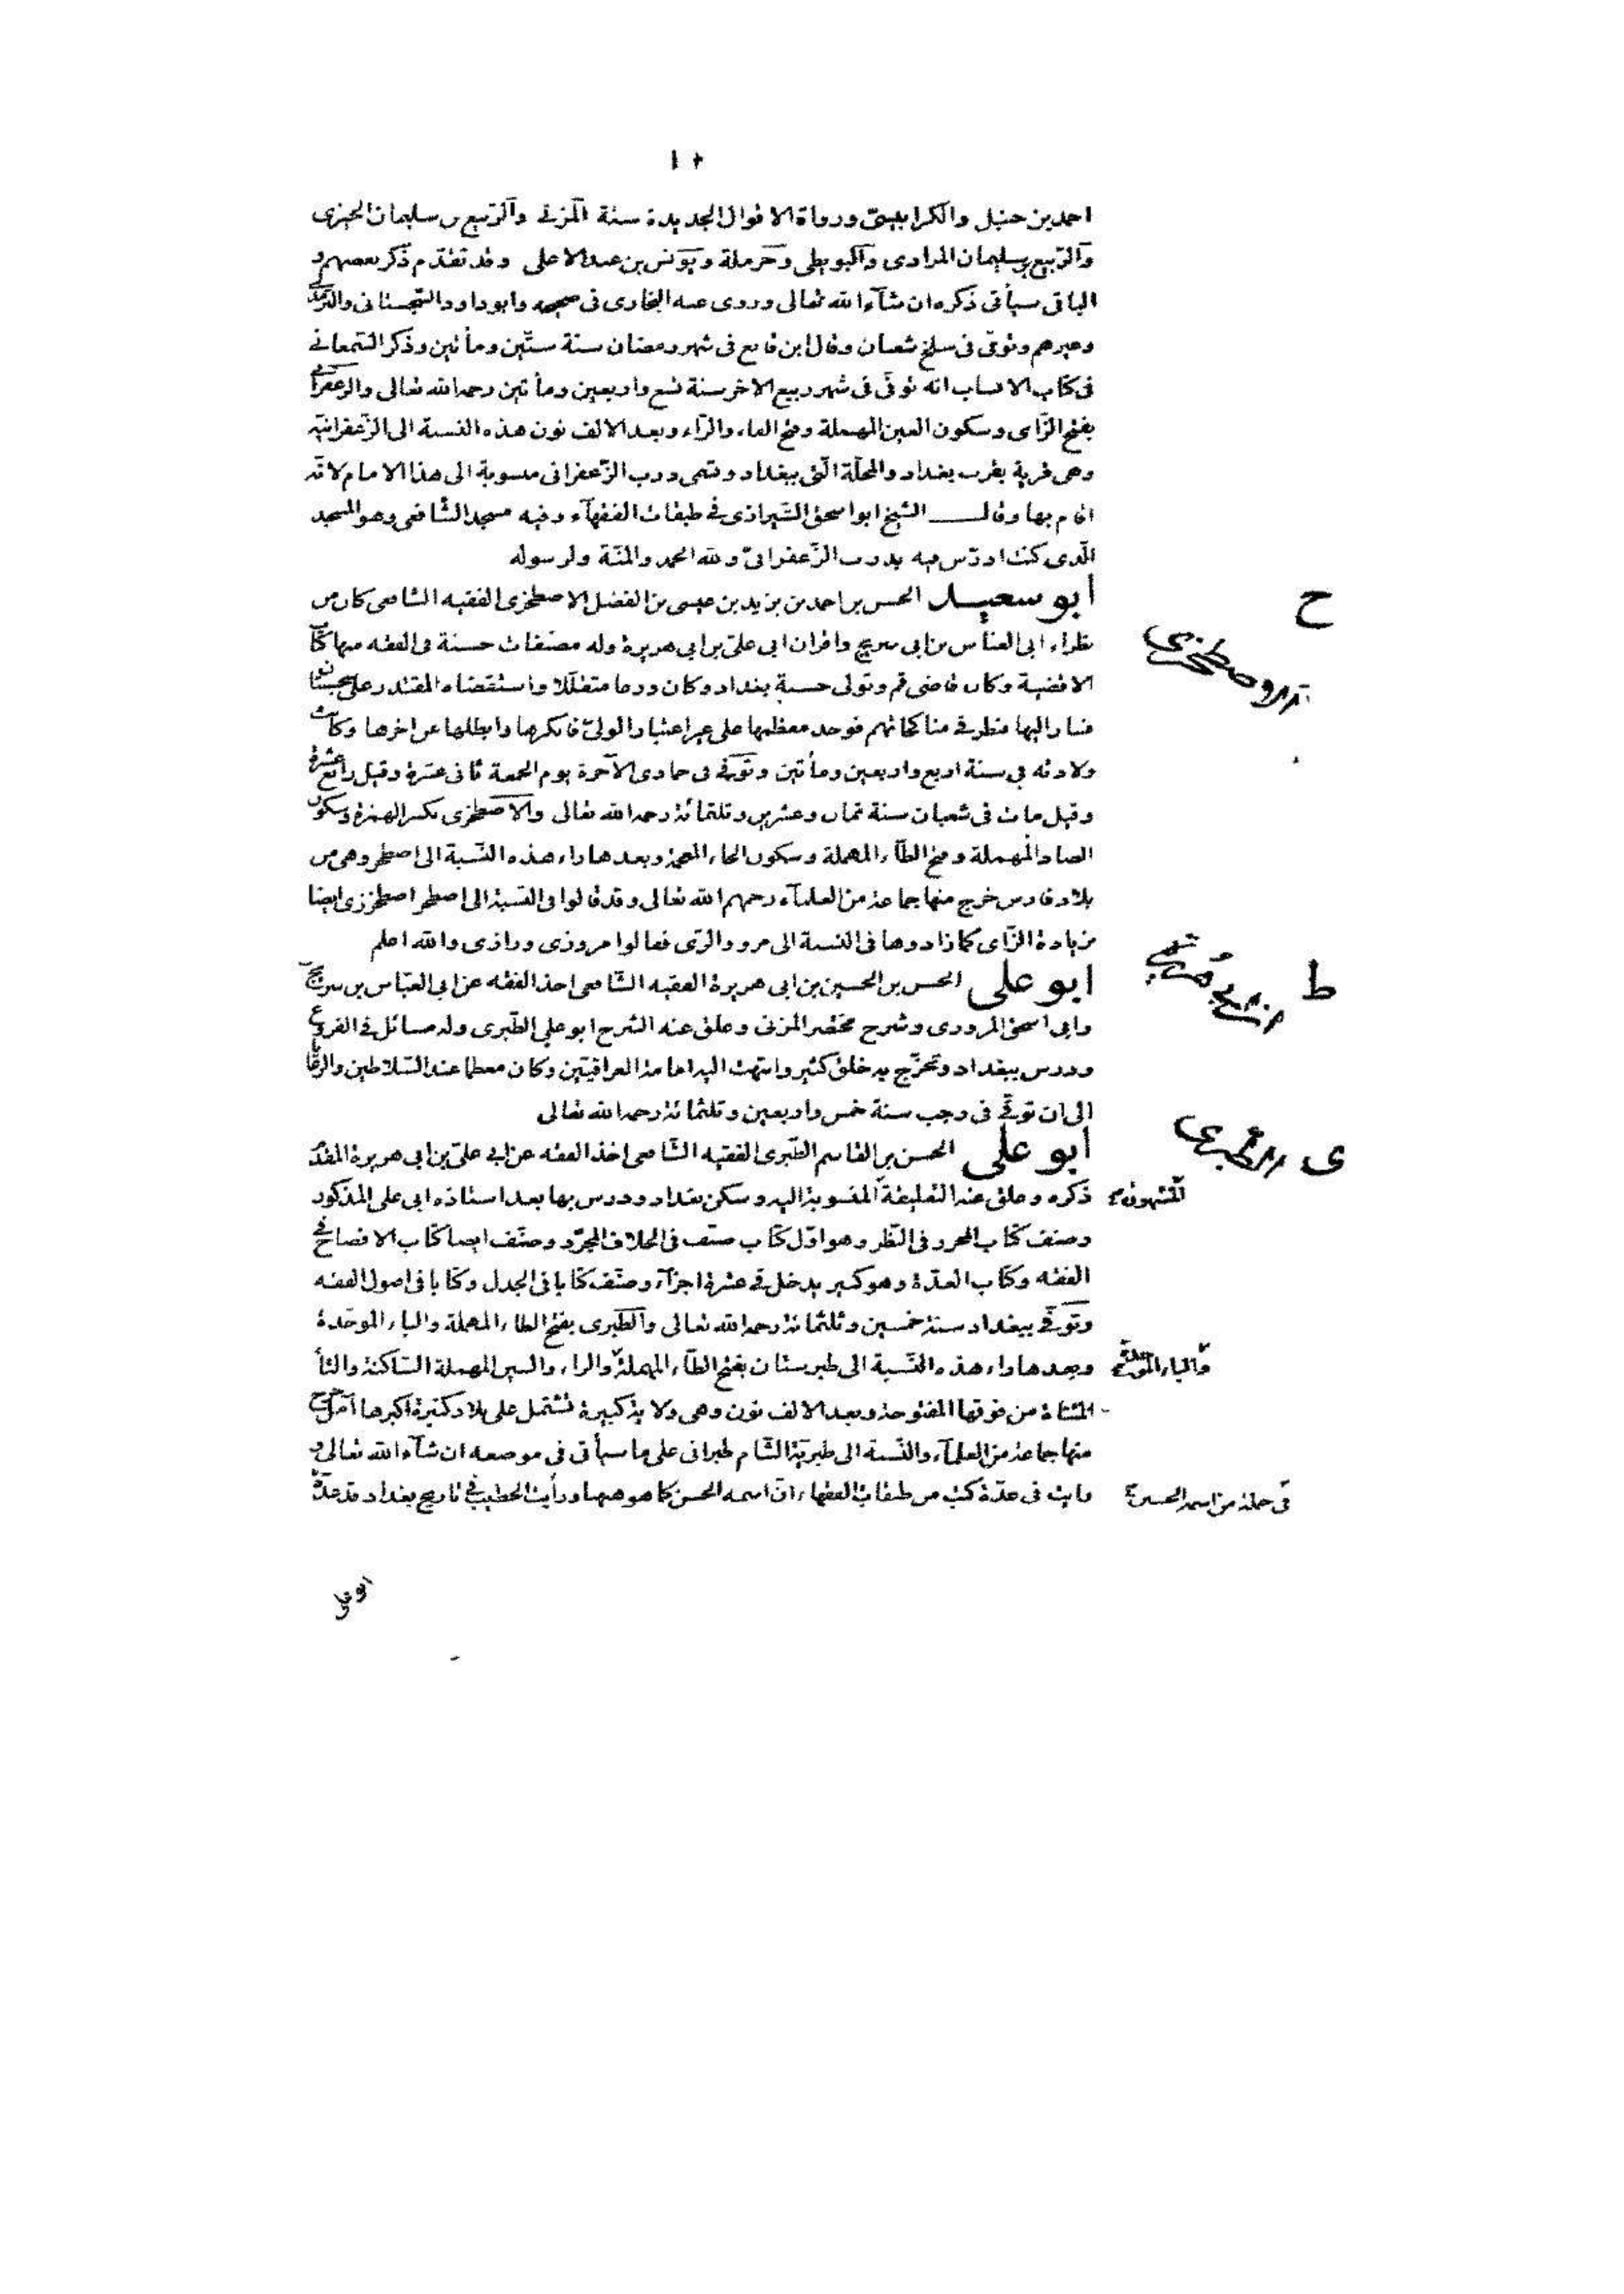 ١٠
احمد بن حنبل والكرابيسى ورواة الاقوال الجديدة ستة المزنى والربيع بن سليمان الجيزى
والربيع بن سليمان المرادى والبويطى وحرملة ويونس بن عبد الاعلى وقد تقدم ذكر بعضهم و
الباقى سيأتى ذكره ان شآء الله تعالى وروى عنه البخارى فى صحيحه وابو داود السجستانى والترمذى
وغيرهم وتوفى فى سلخ شعبان وقال ابن قانع فى شهر رمضان سنة ستين ومأتين وذكر السمعانى
فى كتاب الانساب انه توفى فى شهر ربيع الاخر سنة تسع واربعين ومأتين رحمه الله تعالى والزعفرا
بفتح الزاى وسكون العين المهملة وفتح الفاء والراء وبعد الالف نون هذه النسبة الى الزعفرانية
وهى قرية بقرب بغداد والمحلة التى ببغداد وتسمى درب الزعفرانى منسوبة الى هذا الامام لانه
اقام بها وقال الشيخ ابو اسحق الشيرازى فى طبقات الفقهآء وفيه مسجد الشافعى وهو المسجد
الذى كنت ادرس فيه بدرب الزعفرانى ولله الحمد والمنة ولرسوله
ح
أبو سعيد الحسن بن احمد بن يزيد بن عيسى بن الفضل الاصطخرى الفقيه الشافعى كان من
نظراء ابى العباس بن ابى سريج واقران ابى على بن ابى هريرة وله مصنفات حسنة فى الفقه منها كتا
الاقضية وكان قاضى قم وتولى حسبة بغداد وكان ورعا متقللا واستقضاه المقتدر على سجستان
فسار اليها فنظر فى مناكحاتهم فوجد معظمها على غير اعتبار الولى فانكرها وابطلها عن اخرها وكانت
ولادته فى سنة اربع واربعين ومأتين وتوفى فى جمادى الآخرة يوم الجمعة ثانى عشرة وقيل رابع عشرة
وقيل مات فى شعبان سنة ثمان وعشرين وثلثمائة رحمه الله تعالى والاصطخرى بكسر الهمزة وسكون
الصاد المهملة وفتح الطآء المهملة وسكون الخاء المعجمة وبعدها راء هذه النسبة الى اصطخر وهى من
بلاد فارس خرج منها جماعة من العلمآء رحمهم الله تعالى وقد قالوا فى النسبة الى اصطخر اصطخرزى ايضا
بزيادة الزاى كما زادوها فى النسبة الى مرو والرى فقالوا مروزى ورازى والله اعلم
ط
ابو على الحسن بن الحسين بن ابى هريرة الفقيه الشافعى اخذ الفقه عن ابى العباس بن سريج
وابى اسحق المروزى وشرح مختصر المزنى وعلق عنه الشرح ابو على الطبرى وله مسائل فى الفروع
ودرس ببغداد وتخرج به خلق كثير وانتهت اليه امامة العراقيين وكان معظما عند السلاطين والرعا
الى ان توفى فى رجب سنة خمس واربعين وثلثمائة رحمه الله تعالى
ى الطبرى
أبو على الحسن بن القاسم الطبرى الفقيه الشافعى اخذ الفقه عن ابى على بن ابى هريرة المقدم
ذكره وعلق عنه التعليقة المنسوبة اليه وسكن بغداد ودرس بها بعد استاذه ابى على المذكور
وصنف كتاب المحرر فى النظر وهو اول كتاب صنف فى الخلاف المجرد وصنف ايضا كتاب الافصاح فى
الفقه وكتاب العدة وهو كبير يدخل فى عشرة اجزآء وصنف كتابا فى الجدل وكتابا فى اصول الفقه
وتوفى ببغداد سنة خمسين وثلثمائة رحمه الله تعالى والطبرى بفتح الطاء المهملة والباء الموحدة
والباء الموحدة
وبعدها راء هذه النسبة الى طبرستان بفتح الطآء المهملة والراء والسين المهملة الساكنة والتأ
المثناة من فوقها المفتوحة وبعد الالف نون وهى ولاية كبيرة تشتمل على بلاد كثيرة اكبرها آمل خرج
منها جماعة من العلمآء والنسبة الى طبرية الشام طبرانى على ما سيأتى فى موضعه ان شآء الله تعالى و
رايت فى عدة كتب من طبقات الفقهاء ان اسمه الحسن كما هو ههنا ورأيت الخطيب فى تاريخ بغداد قد عده
فى جملة من اسمه الحسين
ابو على